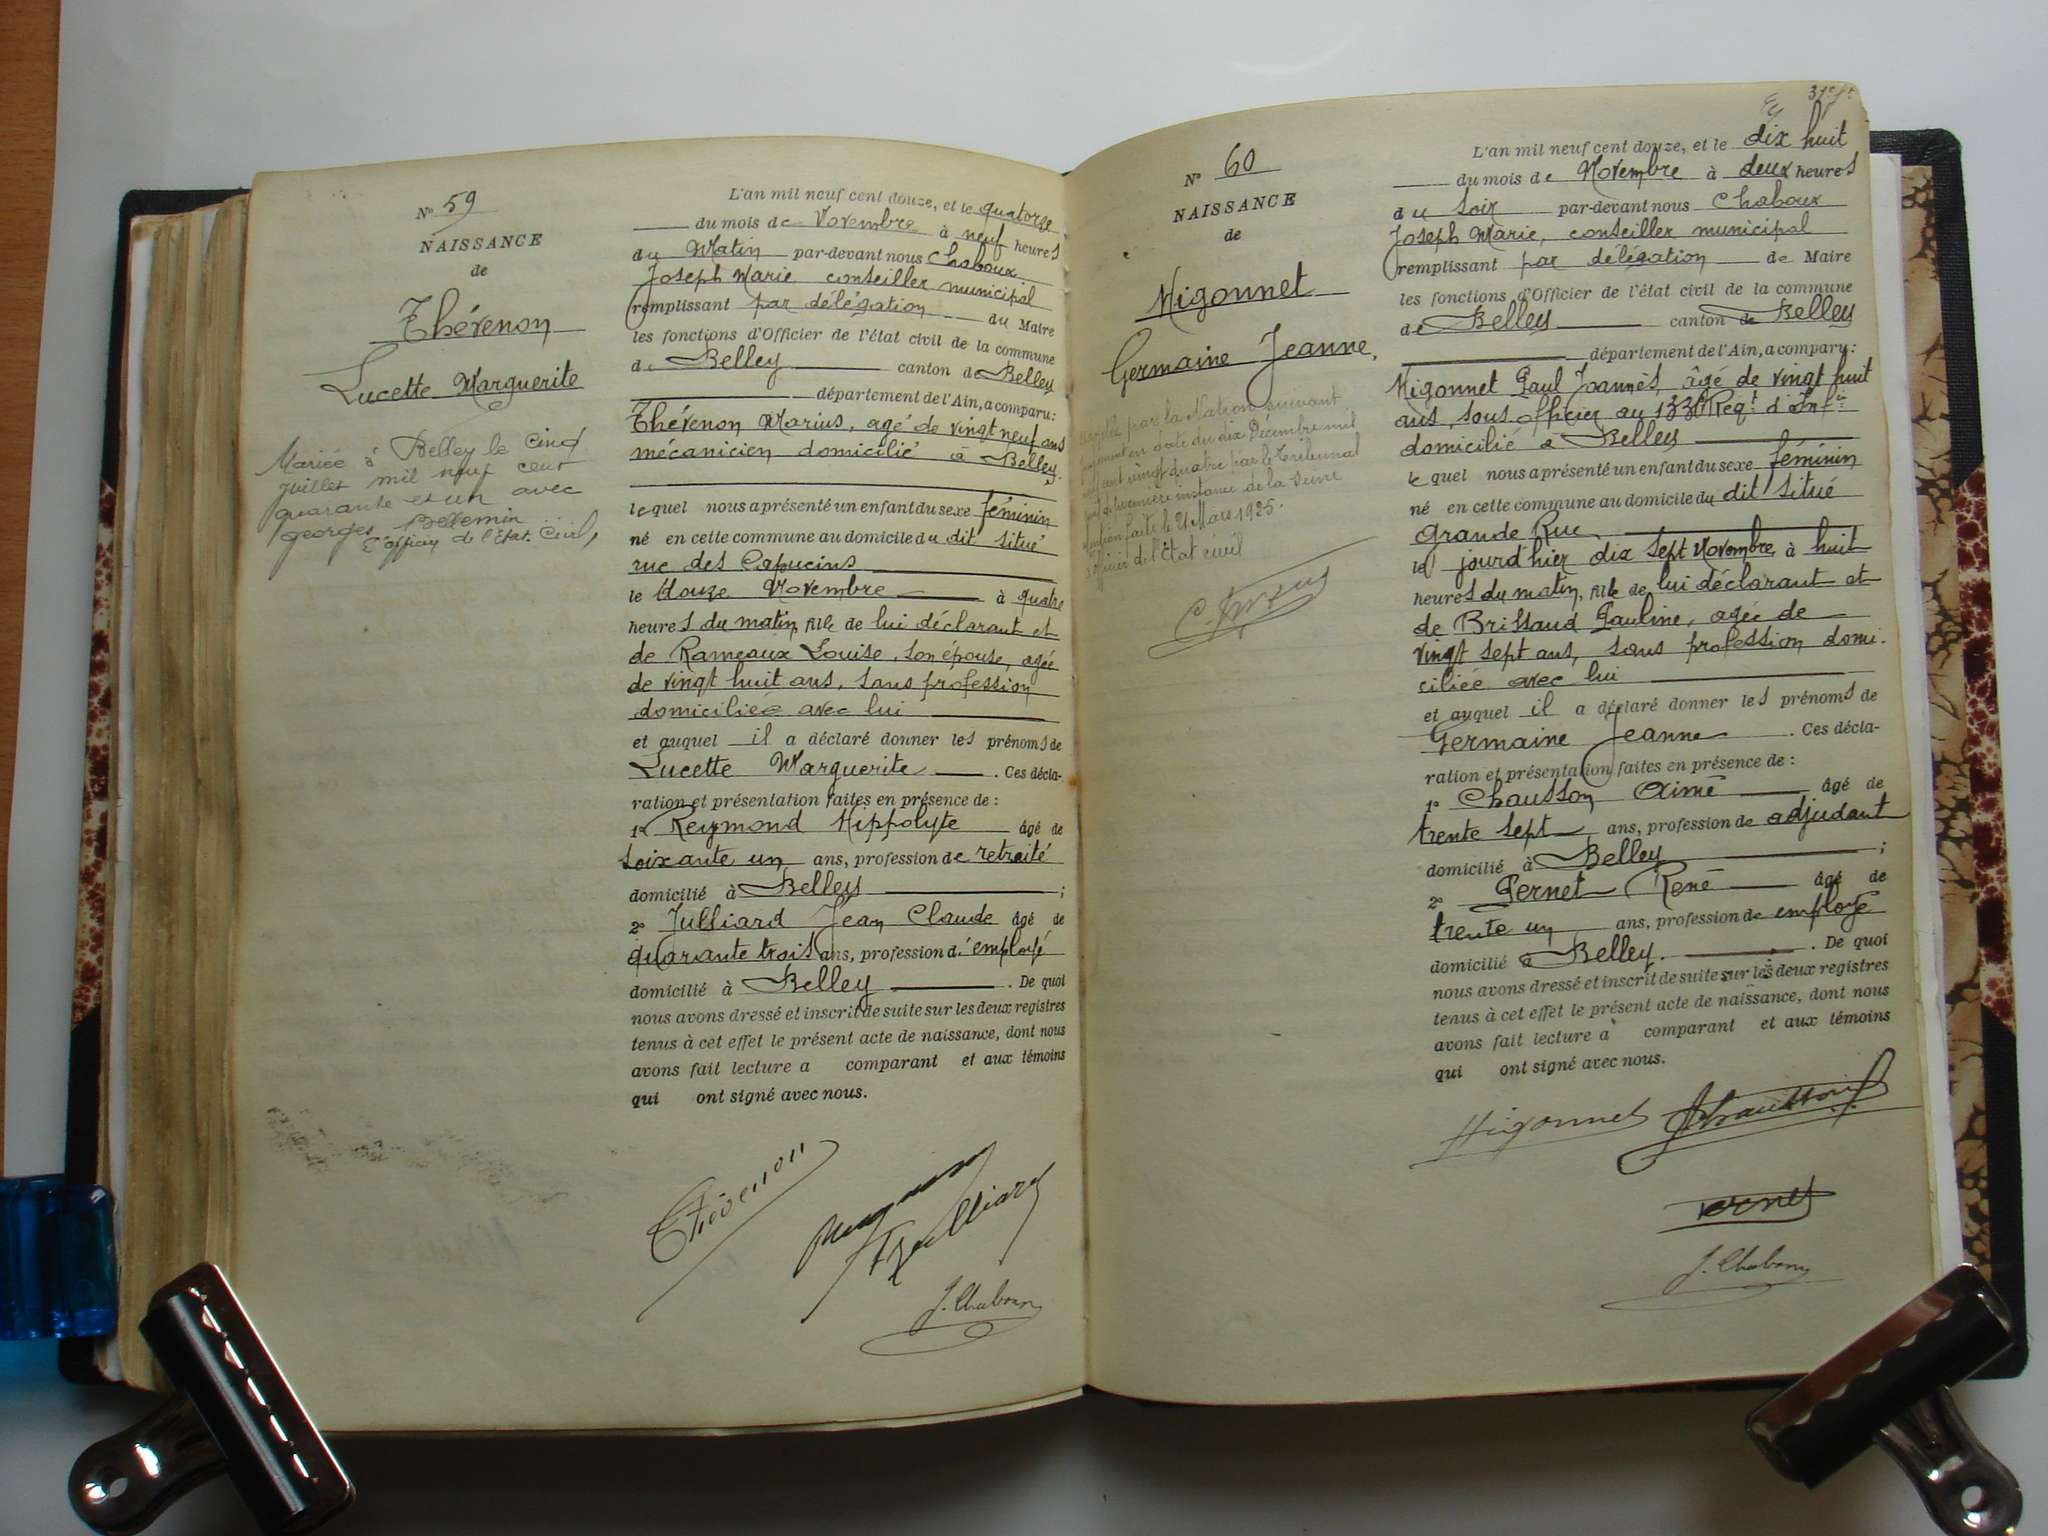 N° 59
NAISSANCE
de
Thévenon
Lucette Marguerite
Mariée à Belley le cinq
juillet mil neuf cent
quarante et un avec
georges Bellemin
L'officier de l'état civil,
L'an mil neuf cent douze, et le quatorze
du mois de Novembre à neuf heures
du Matin par-devant nous Chaboux
Joseph Marie conseiller municipal
remplissant par délégation du Maire
les fonctions d'Officier de l'état civil de la commune
de Belley canton de Belley
département de l'Ain, a comparu:
Thévenon Marius, agé de vingt neuf ans
mécanicien domicilié à Belley.
lequel nous a présenté un enfant du sexe féminin
né en cette commune au domicile du dit situé
rue des Capucins
le douze Novembre à quatre
heures du matin, fille de lui déclarant et
de Rameaux Louise, son épouse, agée
de vingt huit ans, sans profession
domiciliée avec lui
et auquel il a déclaré donner les prénoms de
Lucette Marguerite . Ces décla-
ration et présentation faites en présence de :
1° Reymond Hippolyte âgé de
soixante un ans, profession de retraité
domicilié à Belley ;
2° Julliard Jean Claude âgé de
quarante trois ans, profession d'employé
domicilié à Belley . De quoi
nous avons dressé et inscrit de suite sur les deux registres
tenus à cet effet le présent acte de naissance, dont nous
avons fait lecture a comparant et aux témoins
qui ont signé avec nous.
Thévenon
Julliard
J. Chaboux
N° 60
NAISSANCE
de
Higonnet
Germaine Jeanne.
par la Nation suivant
jugement en date du dix Decembre mil
neuf cent vingt quatre par le Tribunal
de première instance de la Seine
Mention faite le 21 Mars 1925.
officier de l'état civil
L'an mil neuf cent douze, et le dix huit
du mois de Novembre à deux heures
du soir par-devant nous Chaboux
Joseph Marie, conseiller municipal
remplissant par délégation de Maire
les fonctions d'Officier de l'état civil de la commune
de Belley canton de Belley
département de l'Ain, a comparu:
Higonnet Paul Joannès, âgé de vingt huit
ans, sous officier au 133e Regt d'Infie
domicilié à Belley
lequel nous a présenté un enfant du sexe féminin
né en cette commune au domicile du dit situé
Grande Rue
le jourd'hier dix sept Novembre à huit
heures du matin, fille de lui déclarant et
de Brissaud Pauline, agée de
vingt sept ans, sans profession domi-
ciliée avec lui
et auquel il a déclaré donner les prénoms de
Germaine Jeanne . Ces décla-
ration et présentation faites en présence de :
1° Chausson Aimé âgé de
trente sept ans, profession de adjudant
domicilié à Belley ;
2° Pernet René âgé de
trente un ans, profession de employé
domicilié à Belley. . De quoi
nous avons dressé et inscrit de suite sur les deux registres
tenus à cet effet le présent acte de naissance, dont nous
avons fait lecture a comparant et aux témoins
qui ont signé avec nous.
Higonnet Chausson
Pernet
J. Chaboux